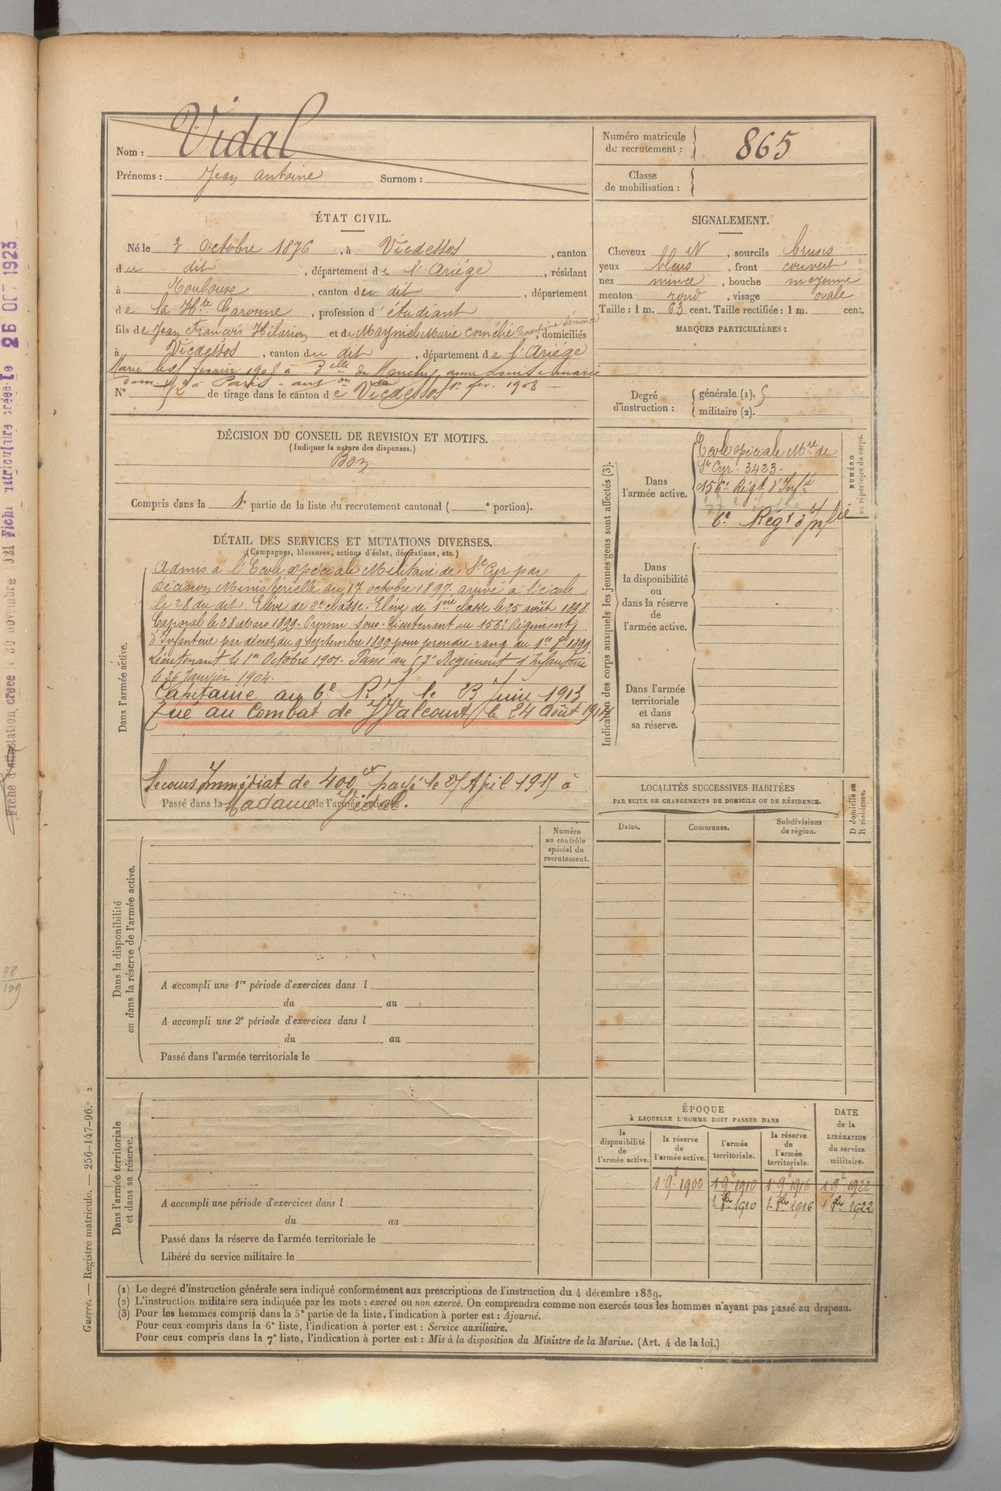 Nom : Vidal
Prénoms : Jean Antoine Surnom :
Numéro matricule du recrutement : 865
Classe de mobilisation :
ÉTAT CIVIL.
Né le 3 Octobre 1876, à Vicdessos, canton
du dit, département de l'Ariège, résidant
à Toulouse, canton du dit, département
de la Hte Garonne, profession d'étudiant
fils de Jean François Hilarion et de Marie, domiciliés
à Vicdessos, canton du dit, département de l'Ariège
Marié le février 1908 à Delle de
à Paris - fev. 1908 -
N° 2 de tirage dans le canton de Vicdessos
SIGNALEMENT.
Cheveux , sourcils bruns
yeux bleus, front couvert
nez mince, bouche moyenne
menton rond, visage ovale
Taille : 1 m. 63 cent. Taille rectifiée : 1 m. cent.
MARQUES PARTICULIÈRES :
Degré d'instruction : générale (1). 5
militaire (2).
DÉCISION DU CONSEIL DE REVISION ET MOTIFS.
(Indiquer la nature des dispenses.)
Bon
Compris dans la 1e partie de la liste du recrutement cantonal ( e portion).
Indication des corps auxquels les jeunes gens sont affectés (3).
NUMÉRO au répertoire du corps.
Dans l'armée active.
Ecole spéciale Mre de
St Cyr 3423
156e Régt d'Infie
6e Régt d'Infie
Dans la disponibilité ou dans la réserve de l'armée active.
Dans l'armée territoriale et dans sa réserve.
DÉTAIL DES SERVICES ET MUTATIONS DIVERSES.
(Campagnes, blessures, actions d'éclat, décorations, etc.)
Dans l'armée active.
Admis à l'Ecole spéciale Militaire de St Cyr par
décision Ministérielle du 17 octobre 1897, arrivé à l'école
le 28 du dit. Elève de 2e classe. Elève de 1ère classe le 25 août 1898.
Caporal le 28 Mars 1899. Promu Sous-Lieutenant au 156e Régiment
d'Infanterie par décret du 9 Septembre 1899 pour prendre rang du 1er 8bre 1899
Lieutenant le 1er Octobre 1901. Passé au Régiment d'Infanterie
le 26 Janvier 1904.
Capitaine au 6e R.I. le 23 Juin 1913
Tué au combat de Walcourt le 24 Août 1914
Secours Immédiat de 400 fr payé le 27 Avril 1915 à
Madame Vidal.
Passé dans la de l'armée active
LOCALITÉS SUCCESSIVES HABITÉES
PAR SUITE DE CHANGEMENTS DE DOMICILE OU DE RÉSIDENCE.
Dates. Communes. Subdivisions de région. D domicile ou R résidence.
Numéro au contrôle spécial du recrutement.
Dans la disponibilité ou dans la réserve de l'armée active.
A accompli une 1re période d'exercices dans l
du au
A accompli une 2e période d'exercices dans l
du au
Passé dans l'armée territoriale le
Dans l'armée territoriale et dans sa réserve.
A accompli une période d'exercices dans l
du au
Passé dans la réserve de l'armée territoriale le
Libéré du service militaire le
ÉPOQUE
À LAQUELLE L'HOMME DOIT PASSER DANS
la disponibilité de l'armée active.
la réserve de l'armée active.
l'armée territoriale.
la réserve de l'armée territoriale.
DATE de la LIBÉRATION du service militaire.
1 9e 1900 1 9e 1910 1 9e 1916 1 9e 1922
1 8bre 1910 1 8bre 1916 1 8bre 1922
(1) Le degré d'instruction générale sera indiqué conformément aux prescriptions de l'instruction du 4 décembre 1889.
(2) L'instruction militaire sera indiquée par les mots : exercé ou non exercé. On comprendra comme non exercés tous les hommes n'ayant pas passé au drapeau.
(3) Pour les hommes compris dans la 5e partie de la liste, l'indication à porter est : Ajourné.
Pour ceux compris dans la 6e liste, l'indication à porter est : Service auxiliaire.
Pour ceux compris dans la 7e liste, l'indication à porter est : Mis à la disposition du Ministre de la Marine. (Art. 4 de la loi.)
Guerre. — Registre matricule. — 256-147-96. 2
Fiche matriculaire créée le 26 OCT 1923
98
109